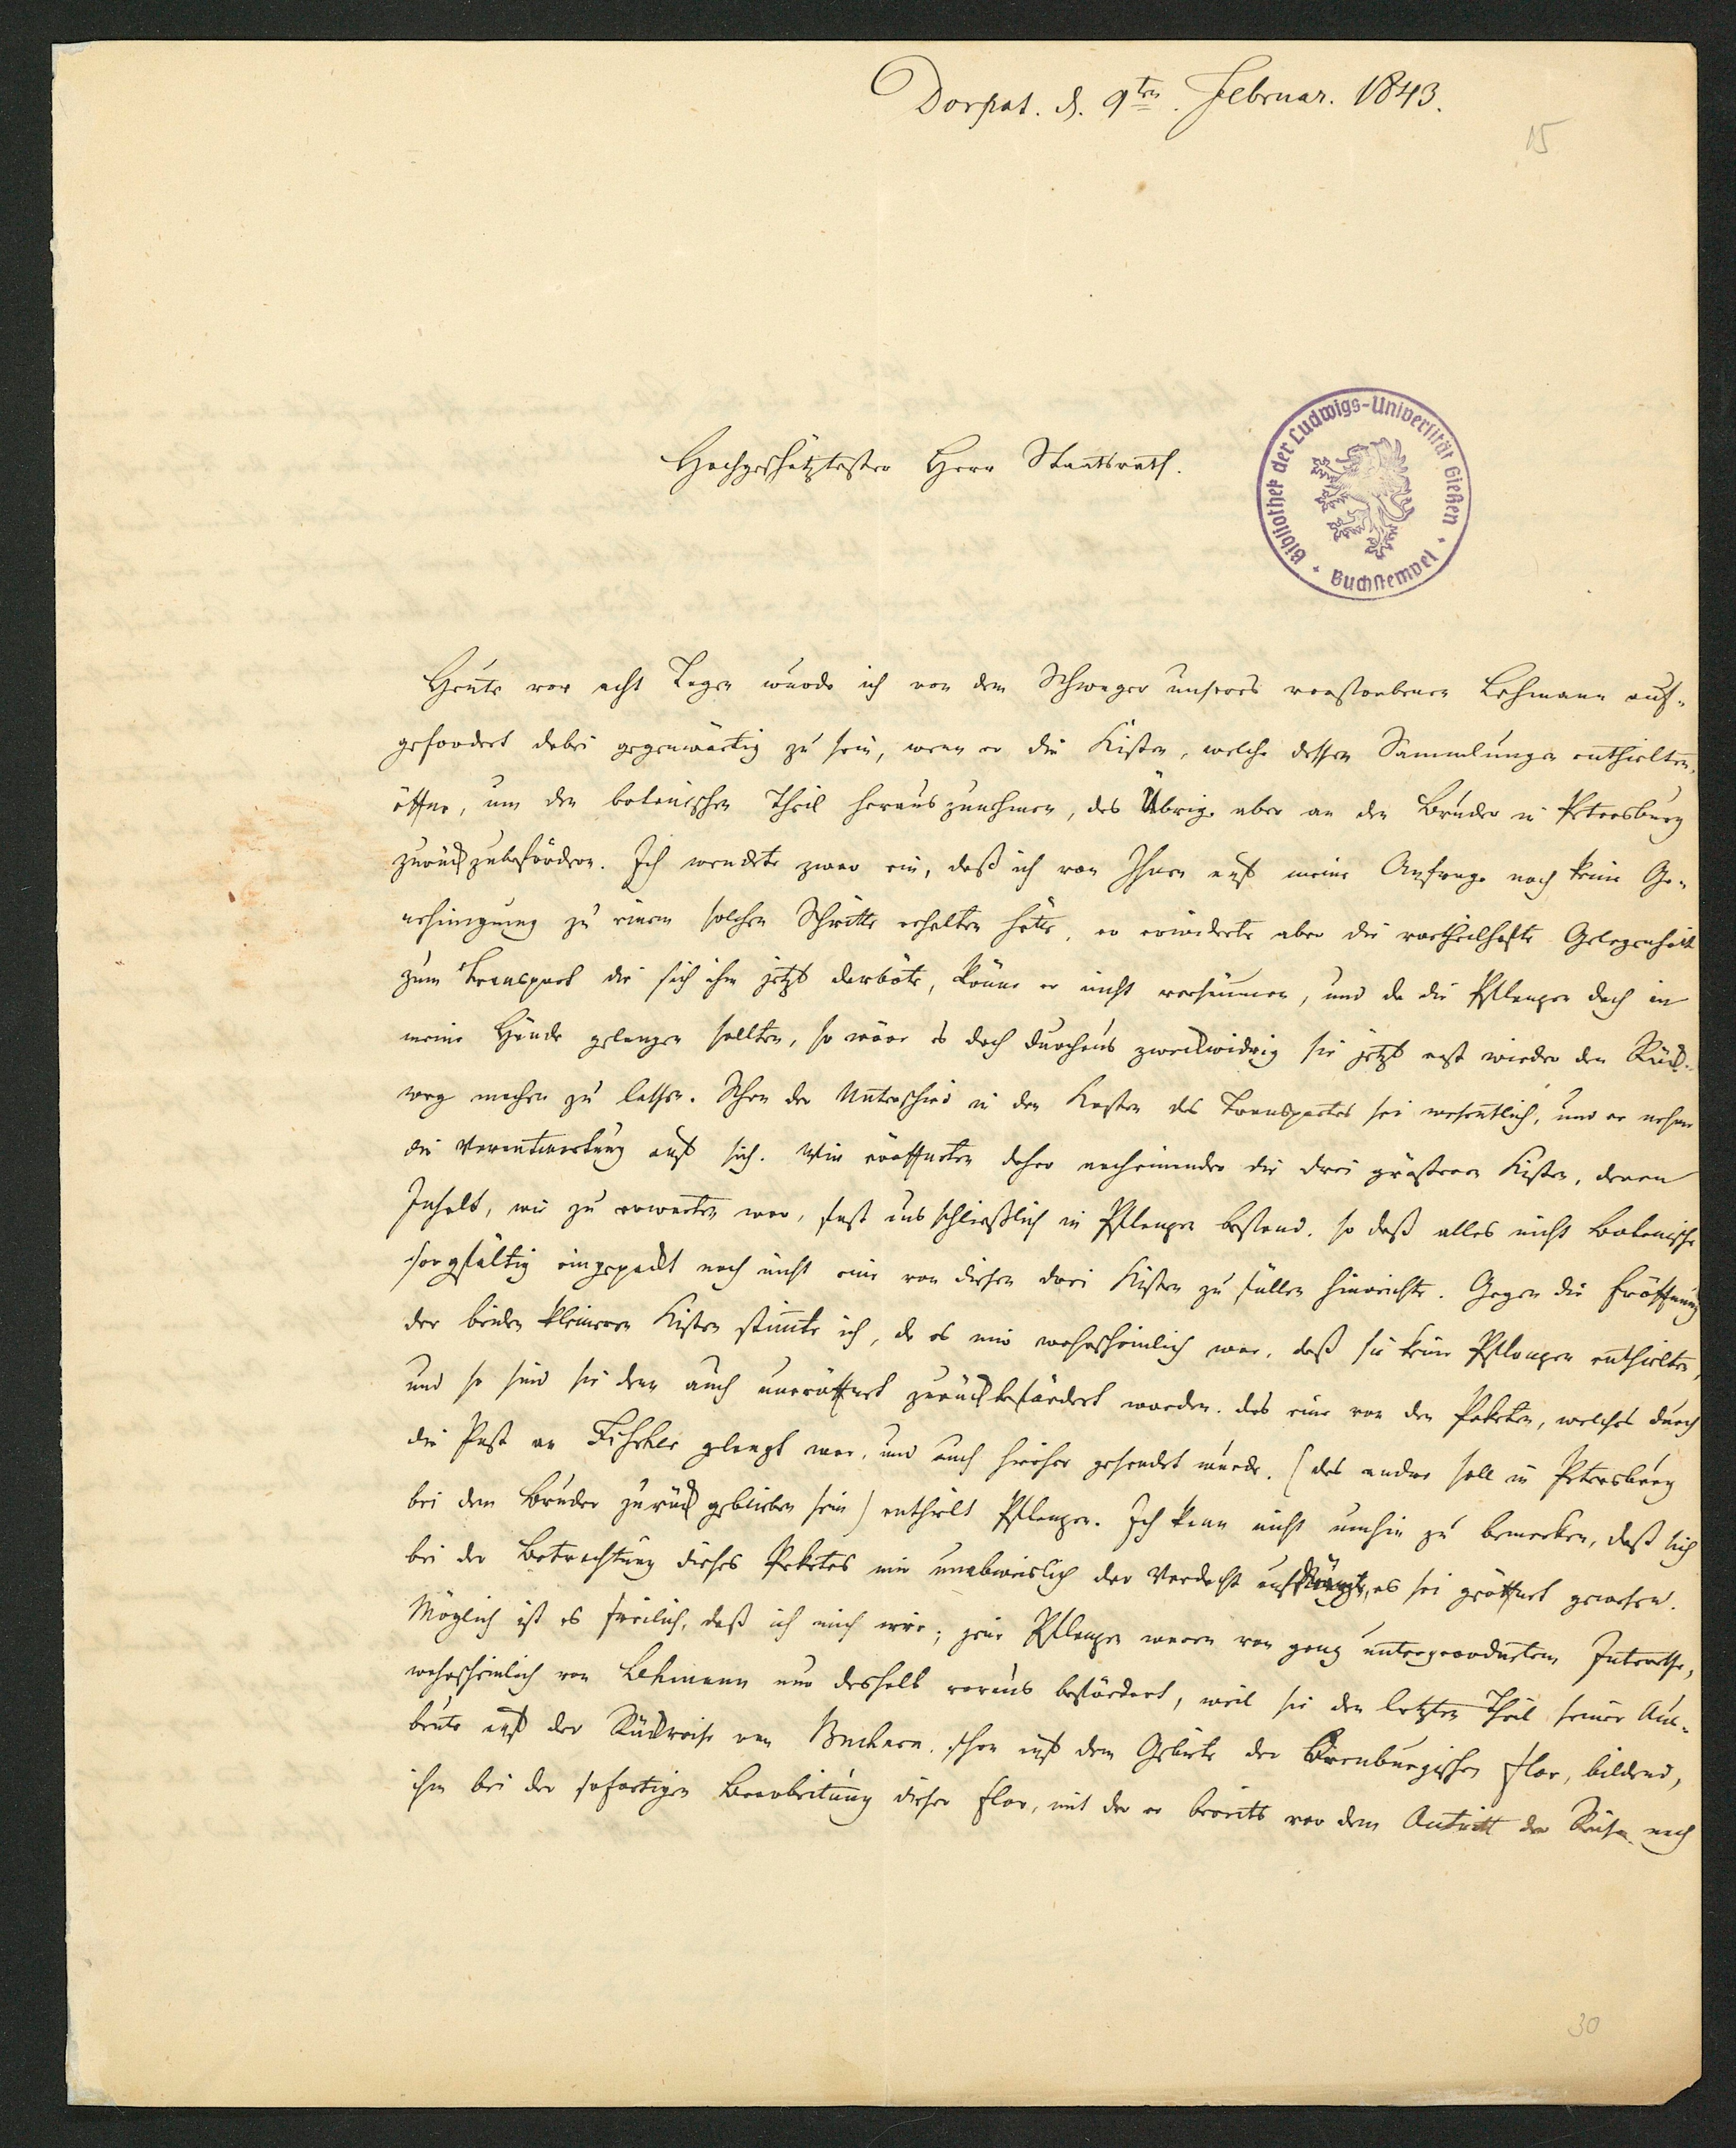 Dorpat. d. 9ten. Februar. 1843.
15
Hochgeschätztester Herr Staatsrath.
Bibliothek der Ludwigs-Universität Gießen · Buchstempel ·
Heute vor acht Tagen wurde ich von dem Schwager unseres verstorbenen Lehmann auf-
gefordert dabei gegenwärtig zu sein, wenn er die Kisten, welche dessen Sammlungen enthielten,
öffne, um den botanischen Theil herauszunehmen, das Übrige aber an den Bruder in Petersburg
zurückzubefördern. Ich wendete zwar ein, daß ich von Ihnen auf meine Anfrage noch keine Ge-
nehmigung zu einem solchen Schritte erhalten hätte, er erwiderte aber die vortheilhafte Gelegenheit
zum Transport die sich ihm jetzt darböte, könne er nicht versäumen, und da die Pflanzen doch in
meine Hände gelangen sollten, so wäre es doch durchaus zweckwidrig sie jetzt erst wieder den Rück-
weg machen zu lassen. Schon der Unterschied in den Kosten des Transportes sei wesentlich, und er nehme
die Verantwortung auf sich. Wir eröffneten daher nacheinander die drei grösseren Kisten, deren
Inhalt, wie zu erwarten war, fast ausschließlich in Pflanzen bestand, so daß alles nicht Botanische
sorgfältig eingepackt noch nicht eine von diesen drei Kisten zu füllen hinreichte. Gegen die Eröffnung
der beiden kleineren Kisten stimmte ich, da es mir wahrscheinlich war, daß sie keine Pflanzen enthielten,
und so sind sie denn auch uneröffnet zurückbefördert worden. das eine von den Paketen, welches durch
die Post an Fischer gelangt war, und auch hieher gesendet wurde, (das andre soll in Petersburg
bei dem Bruder zurück geblieben sein) enthielt Pflanzen. Ich kann nicht umhin zu bemerken, daß sich
bei der Betrachtung dieses Paketes mir unabweislich der Verdacht aufdrängte, es sei geöffnet gewesen.
Möglich ist es freilich, daß ich mich irre; jene Pflanzen waren von ganz untergeordnetem Interesse,
wahrscheinlich von Lehmann nur deshalb voraus befördert, weil sie den letzten Theil seiner Aus-
beute auf der Rückreise von Buchara, schon auf dem Gebiete der Orenburgischen Flor, bildend,
ihm bei der sofortigen Bearbeitung dieser Flor, mit der er bereits vor dem Antritt der Reise nach
30